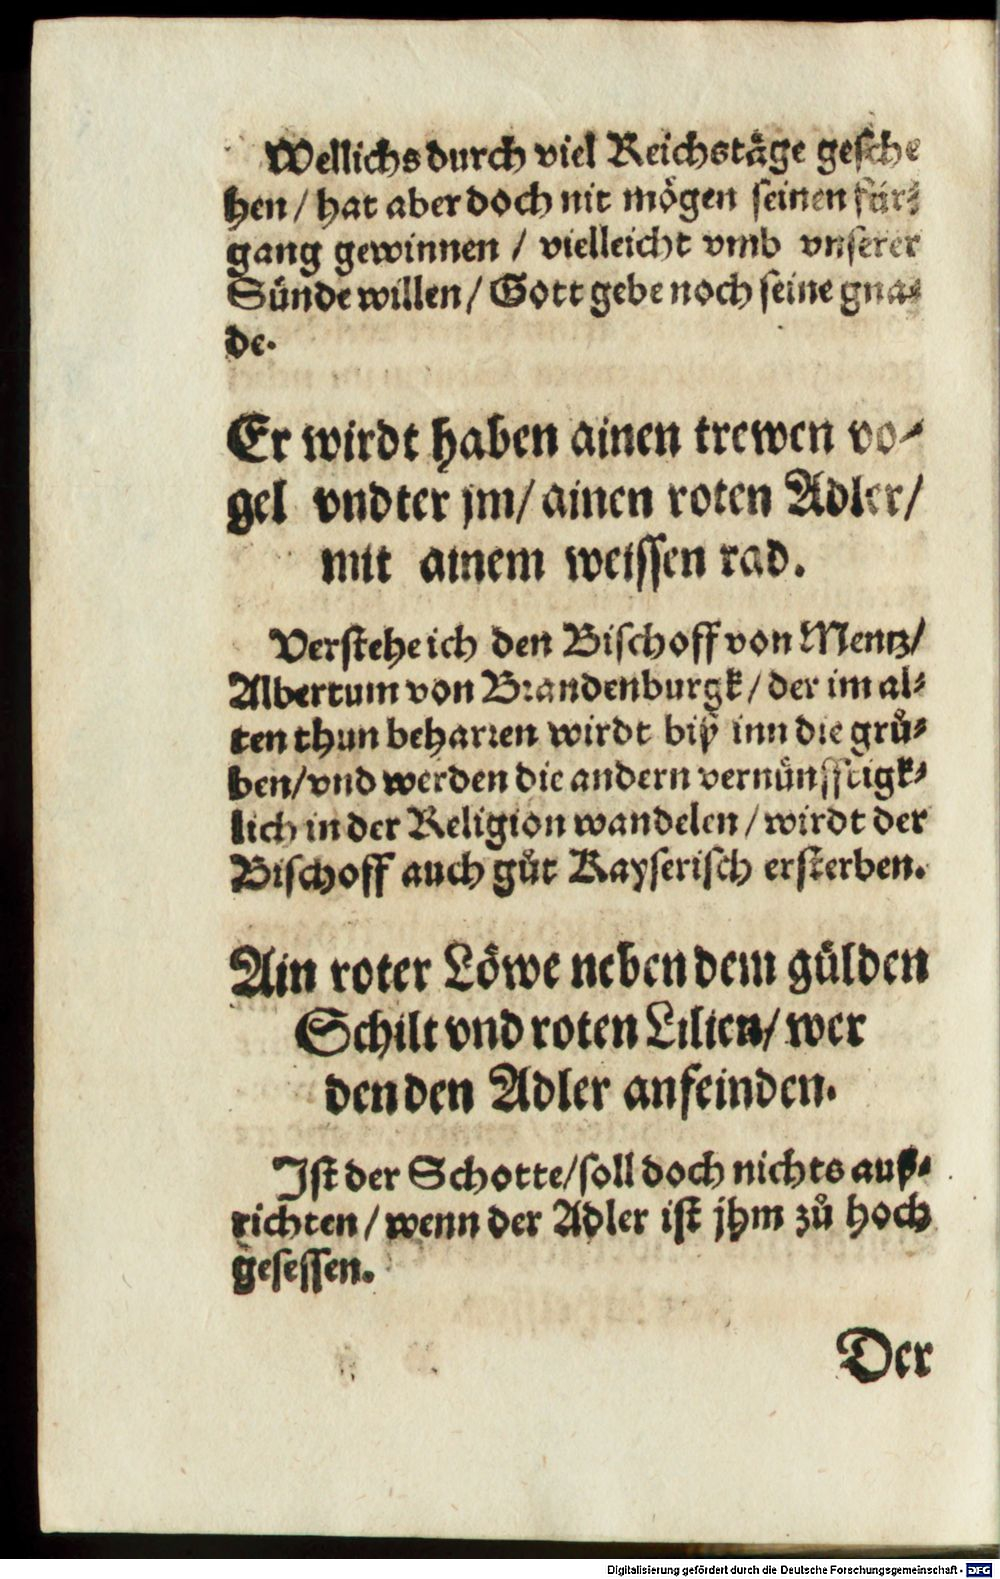 Wellichs durch viel Reichstäge gesche
hen / hat aber doch nit mögen seinen für⸗
gang gewinnen / vielleicht vmb vnserer
Sünde willen / Gott gebe noch seine gna⸗
de.
Er wirdt haben ainen trewen vo⸗
gel vndter jm / ainen roten Adler /
mit ainem weissen rad.
Verstehe ich den Bischoff von Mentz /
Albertum von Brandenburgk / der im al⸗
ten thun beharren wirdt biß inn die grů⸗
ben / vnd werden die andern vernünfftigk⸗
lich in der Religion wandelen / wirdt der
Bischoff auch gůt Kayserisch ersterben.
Ain roter Löwe neben dem gülden
Schilt vnd roten Lilien / wer
den den Adler anfeinden.
Ist der Schotte / soll doch nichts auß⸗
richten / wenn der Adler ist jhm zů hoch
gesessen.
Der
Digitalisierung gefördert durch die Deutsche Forschungsgemeinschaft - DFG